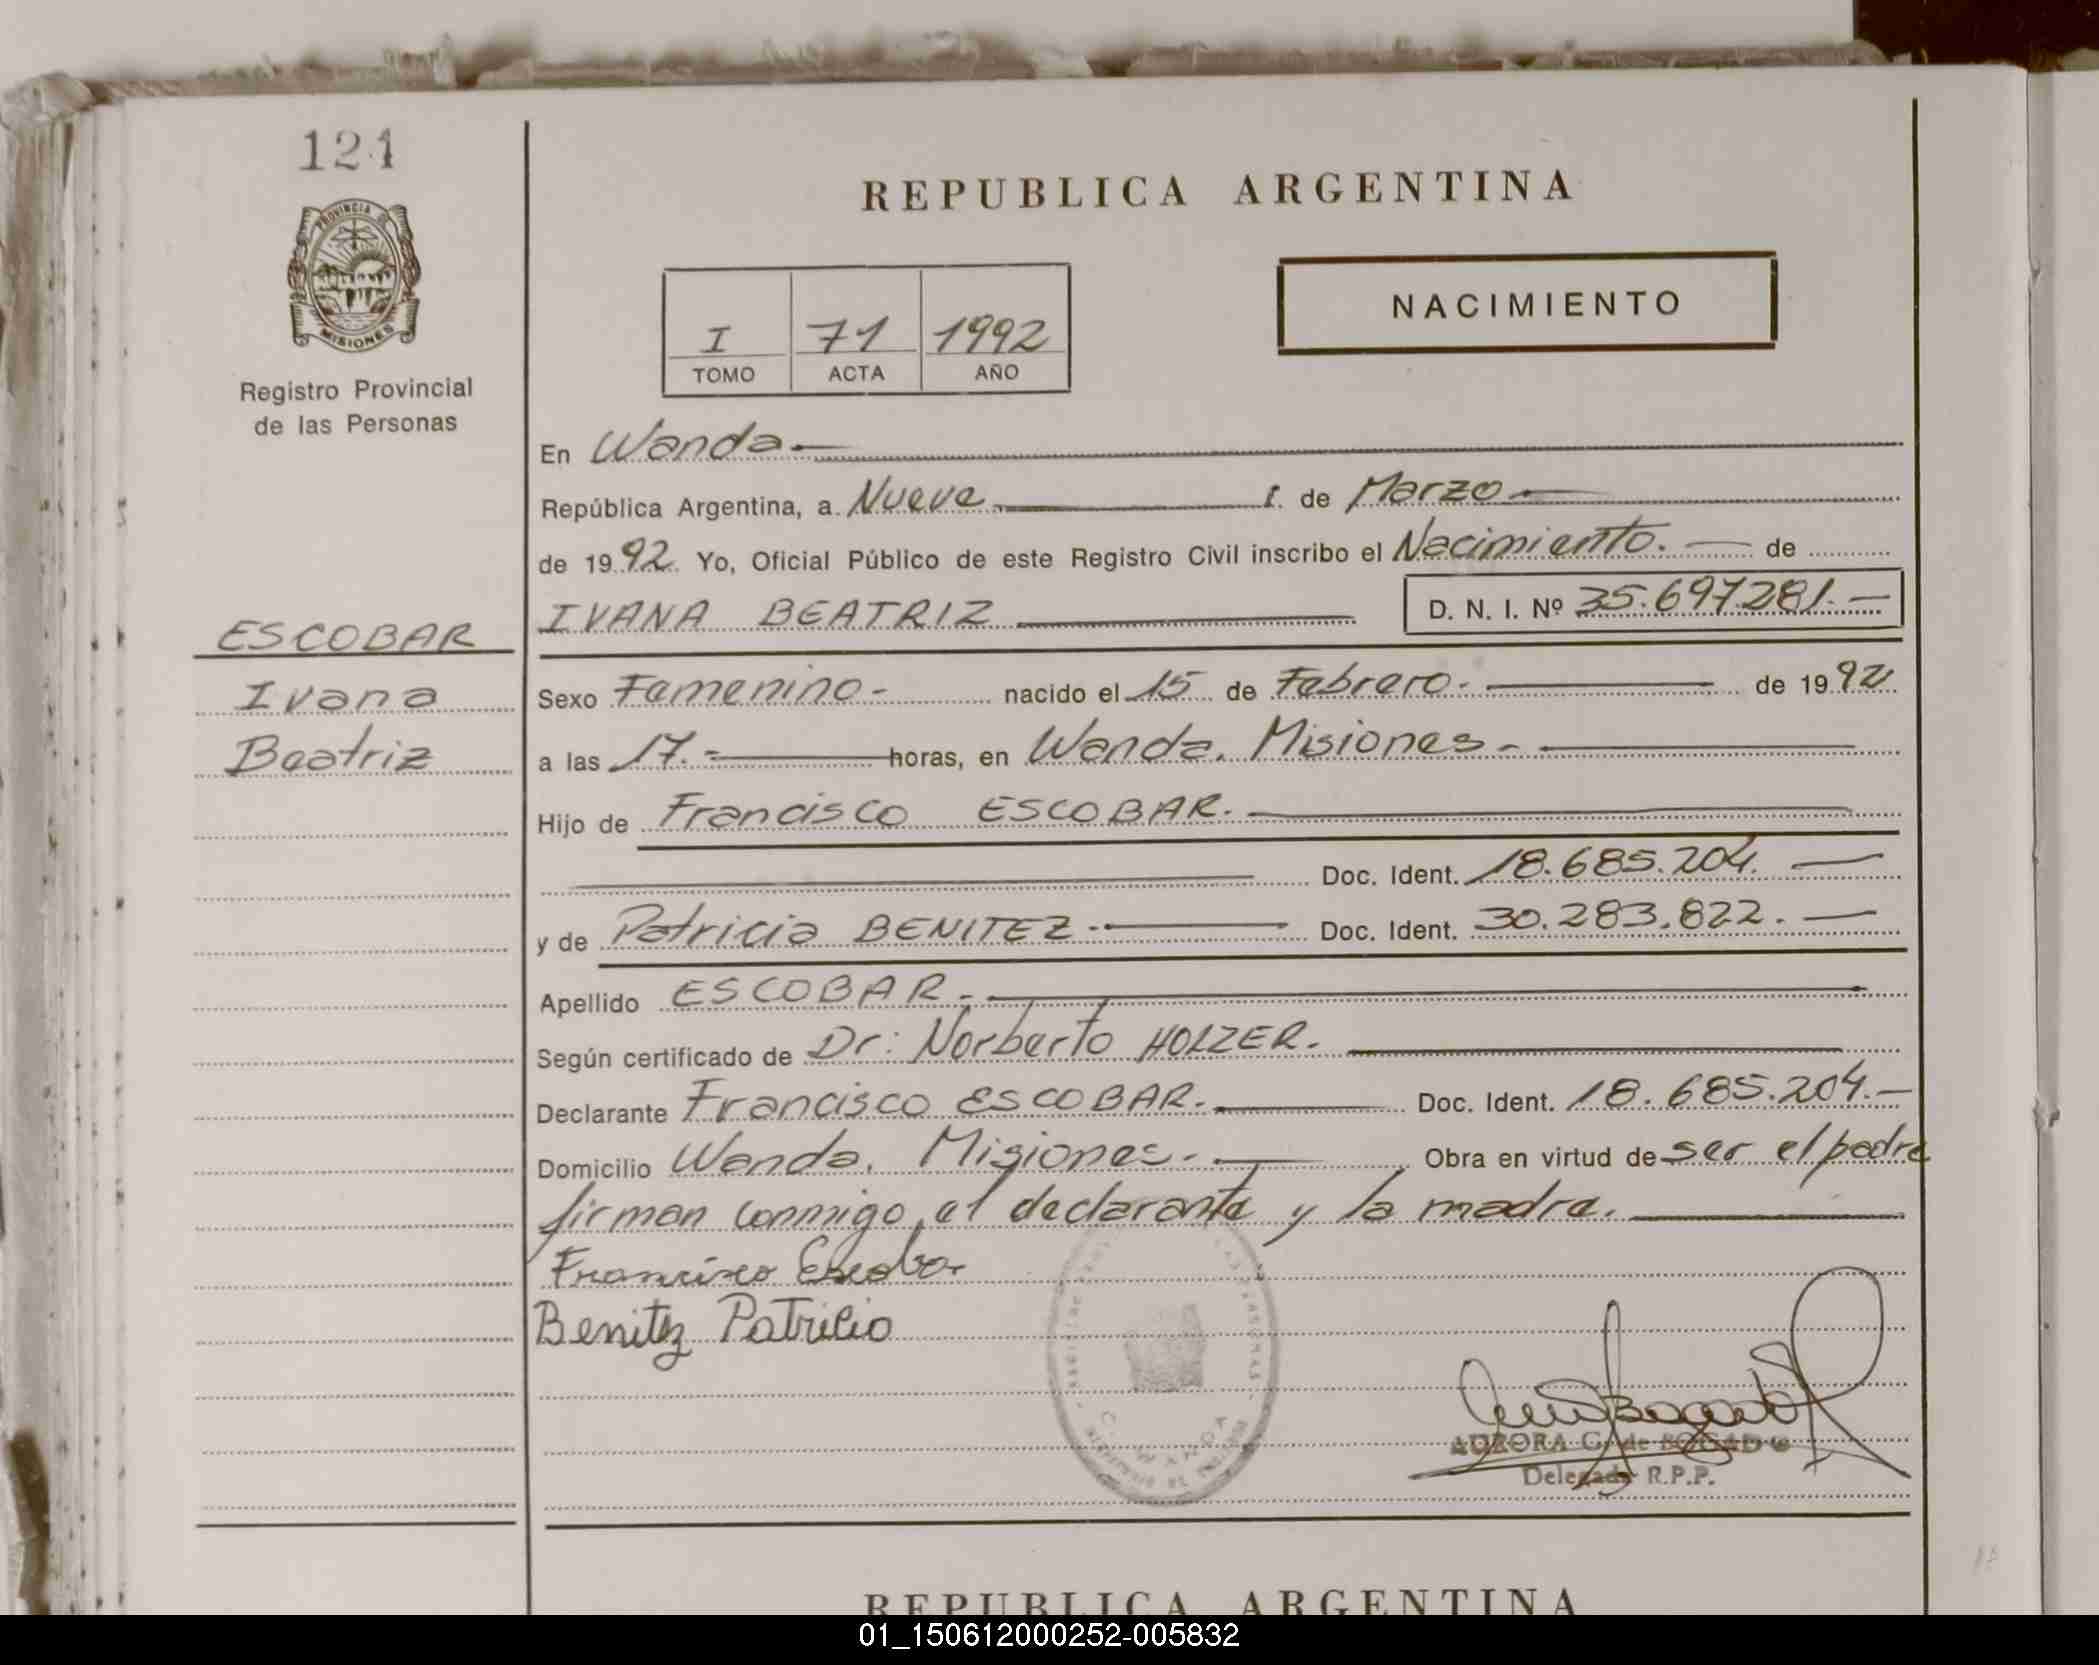 121
PROVINCIA DE
MISIONES
Registro Provincial
de las Personas
REPUBLICA ARGENTINA
NACIMIENTO
I 71 1992
TOMO ACTA AÑO
En Wanda.
República Argentina, a Nueve de Marzo.
de 1992. Yo, Oficial Público de este Registro Civil inscribo el Nacimiento. de
IVANA BEATRIZ D. N. I. Nº 35.697.281.
ESCOBAR
Ivana
Beatriz
Sexo Femenino. nacido el 15 de Febrero. de 1992
a las 17. horas, en Wanda. Misiones.
Hijo de Francisco ESCOBAR.
Doc. Ident. 18.685.204.
y de Patricia BENITEZ. Doc. Ident. 30.283.822.
Apellido ESCOBAR.
Según certificado de Dr: Norberto HOLZER.
Declarante Francisco ESCOBAR. Doc. Ident. 18.685.204.
Domicilio Wanda. Misiones. Obra en virtud de ser el padre
firman conmigo, el declarante y la madre.
Francisco Escobar
Benitez Patricio
WANDA
AURORA G. de BOGADO
Delegada R.P.P.
REPUBLICA ARGENTINA
01_150612000252-005832